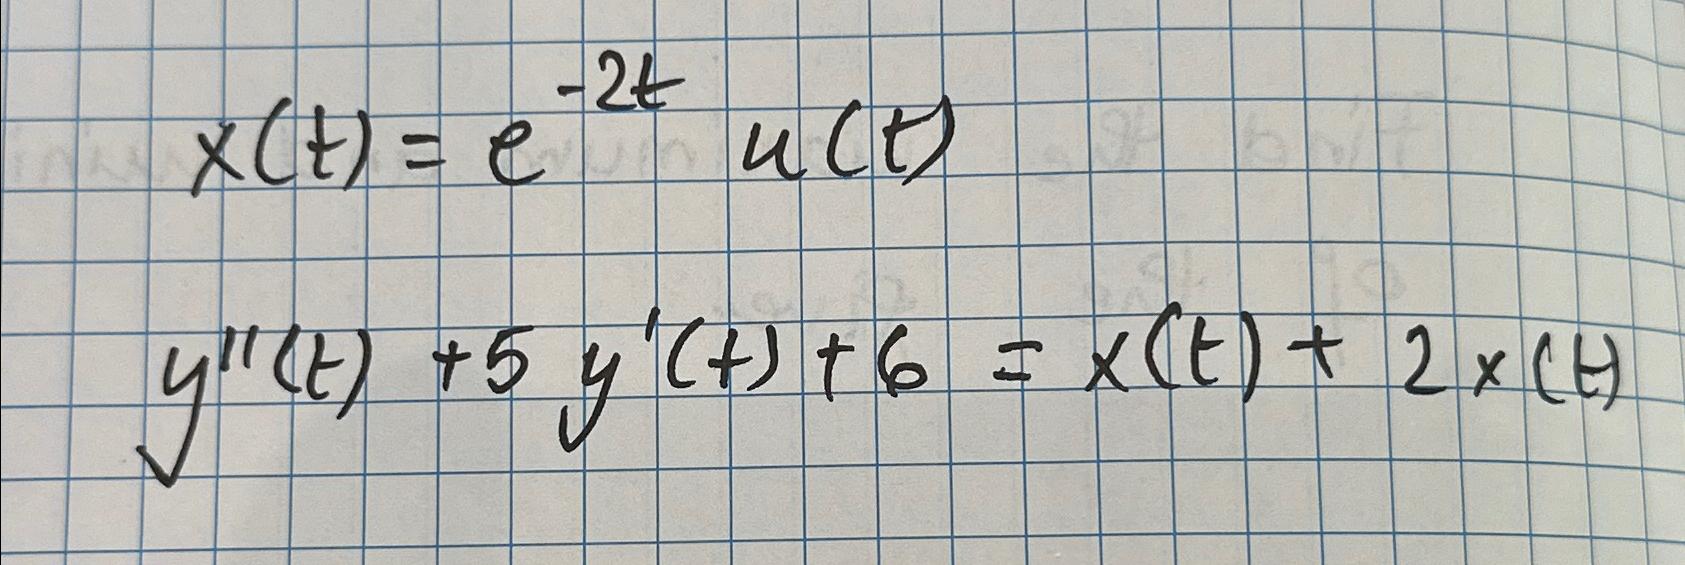 x(t) = e^{-2t} u(t)
y''(t) + 5 y'(t) + 6 = x(t) + 2x(t)